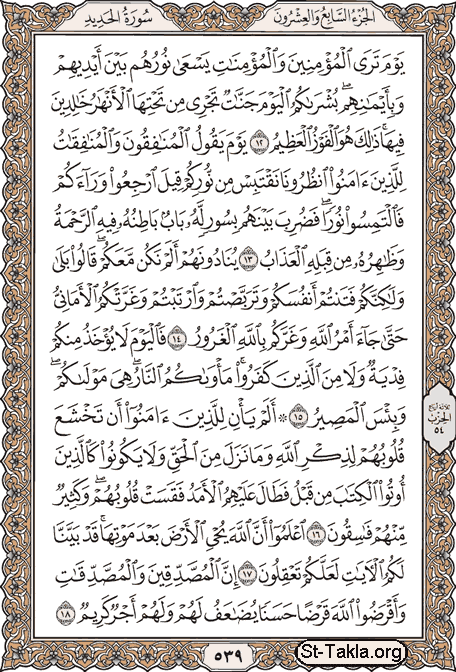 الجزء السابع والعشرون
سورة الحديد
يَوْمَ تَرَى الْمُؤْمِنِينَ وَالْمُؤْمِنَاتِ يَسْعَىٰ نُورُهُم بَيْنَ أَيْدِيهِمْ
وَبِأَيْمَانِهِم بُشْرَاكُمُ الْيَوْمَ جَنَّاتٌ تَجْرِي مِن تَحْتِهَا الْأَنْهَارُ خَالِدِينَ
فِيهَا ۚ ذَٰلِكَ هُوَ الْفَوْزُ الْعَظِيمُ ١٢ يَوْمَ يَقُولُ الْمُنَافِقُونَ وَالْمُنَافِقَاتُ
لِلَّذِينَ ءَامَنُوا انظُرُونَا نَقْتَبِسْ مِن نُّورِكُمْ قِيلَ ارْجِعُوا وَرَاءَكُمْ
فَالْتَمِسُوا نُورًا ۖ فَضُرِبَ بَيْنَهُم بِسُورٍ لَّهُ بَابٌ بَاطِنُهُ فِيهِ الرَّحْمَةُ
وَظَاهِرُهُ مِن قِبَلِهِ الْعَذَابُ ١٣ يُنَادُونَهُمْ أَلَمْ نَكُن مَّعَكُمْ ۖ قَالُوا بَلَىٰ
وَلَٰكِنَّكُمْ فَتَنتُمْ أَنفُسَكُمْ وَتَرَبَّصْتُمْ وَارْتَبْتُمْ وَغَرَّتْكُمُ الْأَمَانِيُّ
حَتَّىٰ جَاءَ أَمْرُ اللَّهِ وَغَرَّكُم بِاللَّهِ الْغَرُورُ ١٤ فَالْيَوْمَ لَا يُؤْخَذُ مِنكُمْ
فِدْيَةٌ وَلَا مِنَ الَّذِينَ كَفَرُوا ۚ مَأْوَاكُمُ النَّارُ ۖ هِيَ مَوْلَاكُمْ ۖ
وَبِئْسَ الْمَصِيرُ ١٥ ۞ أَلَمْ يَأْنِ لِلَّذِينَ ءَامَنُوا أَن تَخْشَعَ
قُلُوبُهُمْ لِذِكْرِ اللَّهِ وَمَا نَزَلَ مِنَ الْحَقِّ وَلَا يَكُونُوا كَالَّذِينَ
أُوتُوا الْكِتَابَ مِن قَبْلُ فَطَالَ عَلَيْهِمُ الْأَمَدُ فَقَسَتْ قُلُوبُهُمْ ۖ وَكَثِيرٌ
مِّنْهُمْ فَاسِقُونَ ١٦ اعْلَمُوا أَنَّ اللَّهَ يُحْيِي الْأَرْضَ بَعْدَ مَوْتِهَا ۚ قَدْ بَيَّنَّا
لَكُمُ الْآيَاتِ لَعَلَّكُمْ تَعْقِلُونَ ١٧ إِنَّ الْمُصَّدِّقِينَ وَالْمُصَّدِّقَاتِ
وَأَقْرَضُوا اللَّهَ قَرْضًا حَسَنًا يُضَاعَفُ لَهُمْ وَلَهُمْ أَجْرٌ كَرِيمٌ ١٨
الحزب
٥٤
٥٣٩
St-Takla.org